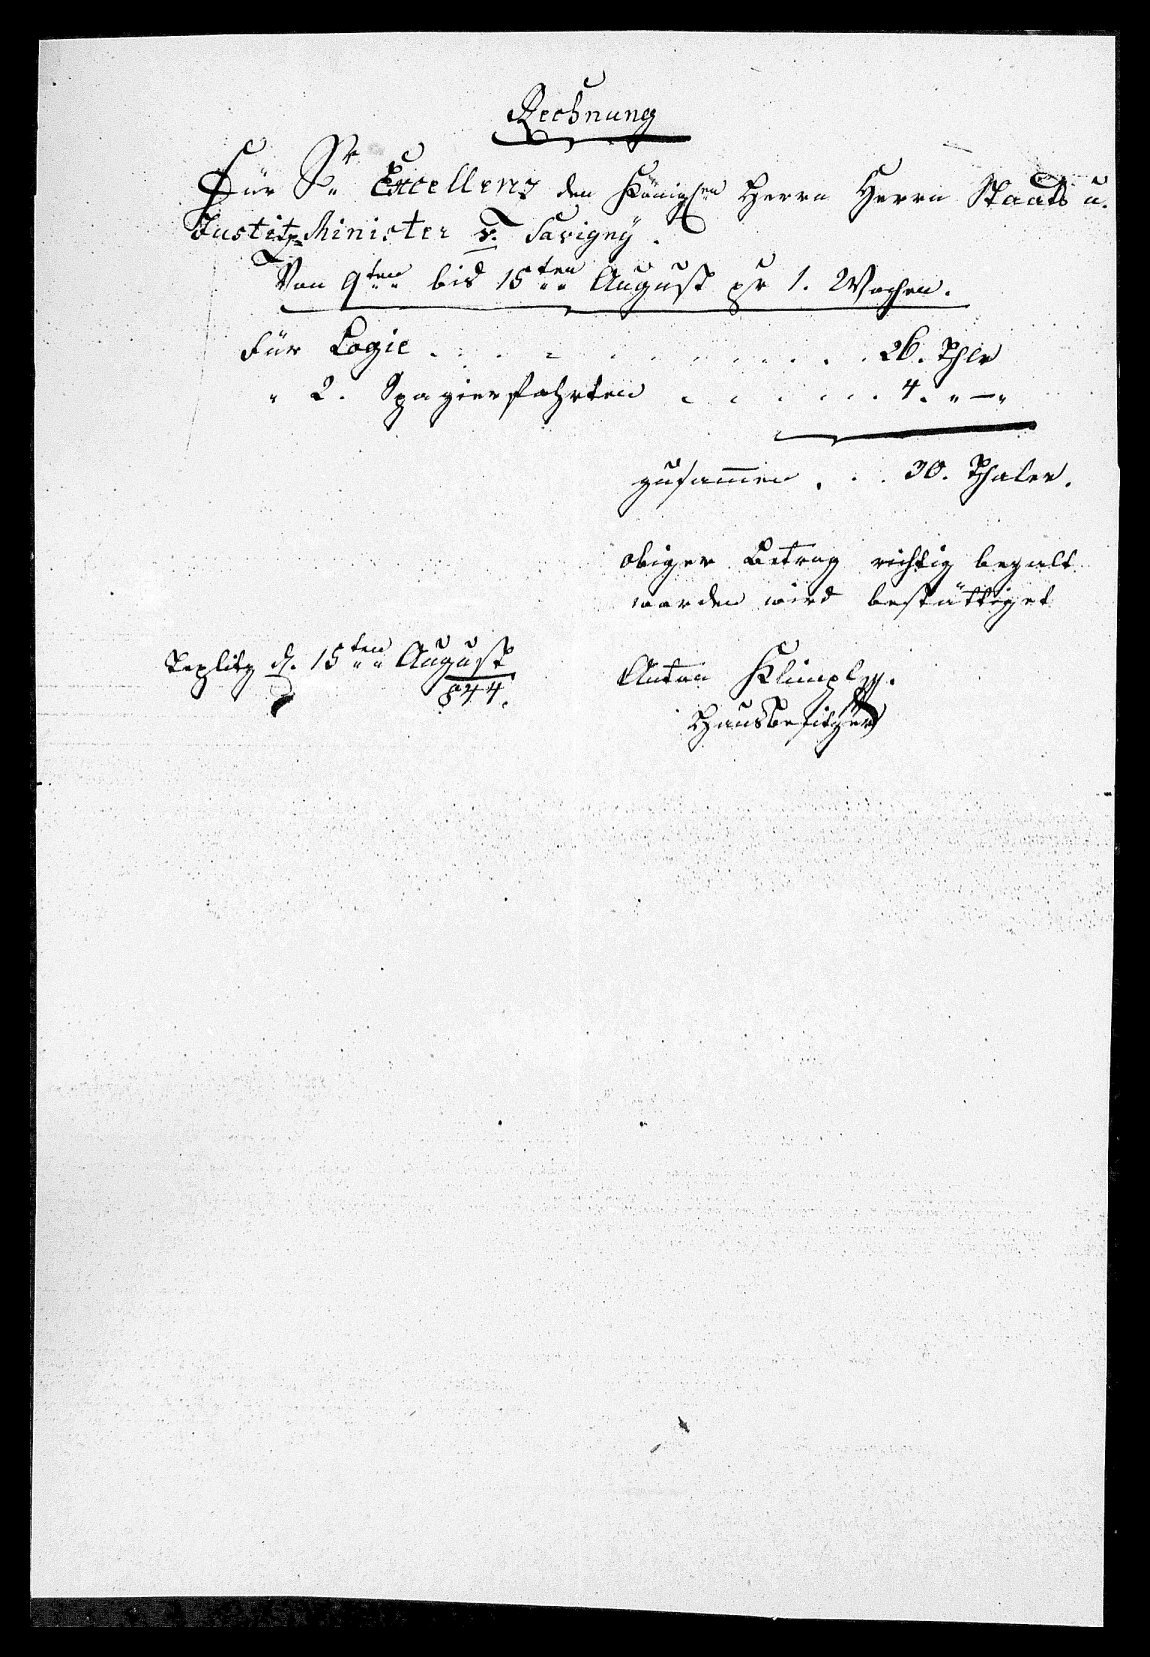 Rechnung
Für Sr Excellenz den Königlen Herrn Herrn Staats u.
Justitz Minister v. Savigny.
Von 9ten bis 15ten August pr 1. Wochen.
Für Logie . . . . . . . . . . . 26. Thlr
" 2. Spazierfahrten . . . . . . 4. " — "
zusammen . . . 30. Thaler.
obiger Betrag richtig bezalt
worden wird bestättiget
Teplitz d. 15ten August
844.
Anton Klimpl
Hausbesitzer